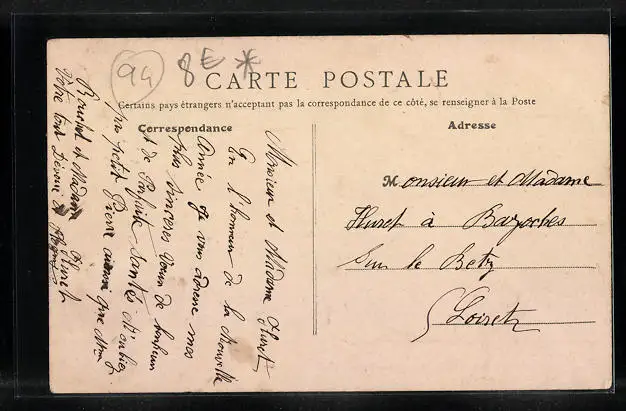 94 8E *
CARTE POSTALE
Certains pays étrangers n'acceptant pas la correspondance de ce côté, se renseigner à la Poste
Correspondance
Adresse
Monsieur et Madame Huret
En l'honneur de la Nouvelle
Année je vous donne mes
plus sincères vœux de bonheur
et de Parfaite Santés
petit Pierre
Bouchet et Madame Huret
Votre tout Dévoué
Monsieur et Madame
Huret à Bazoches
Sur le Betz
Loiret